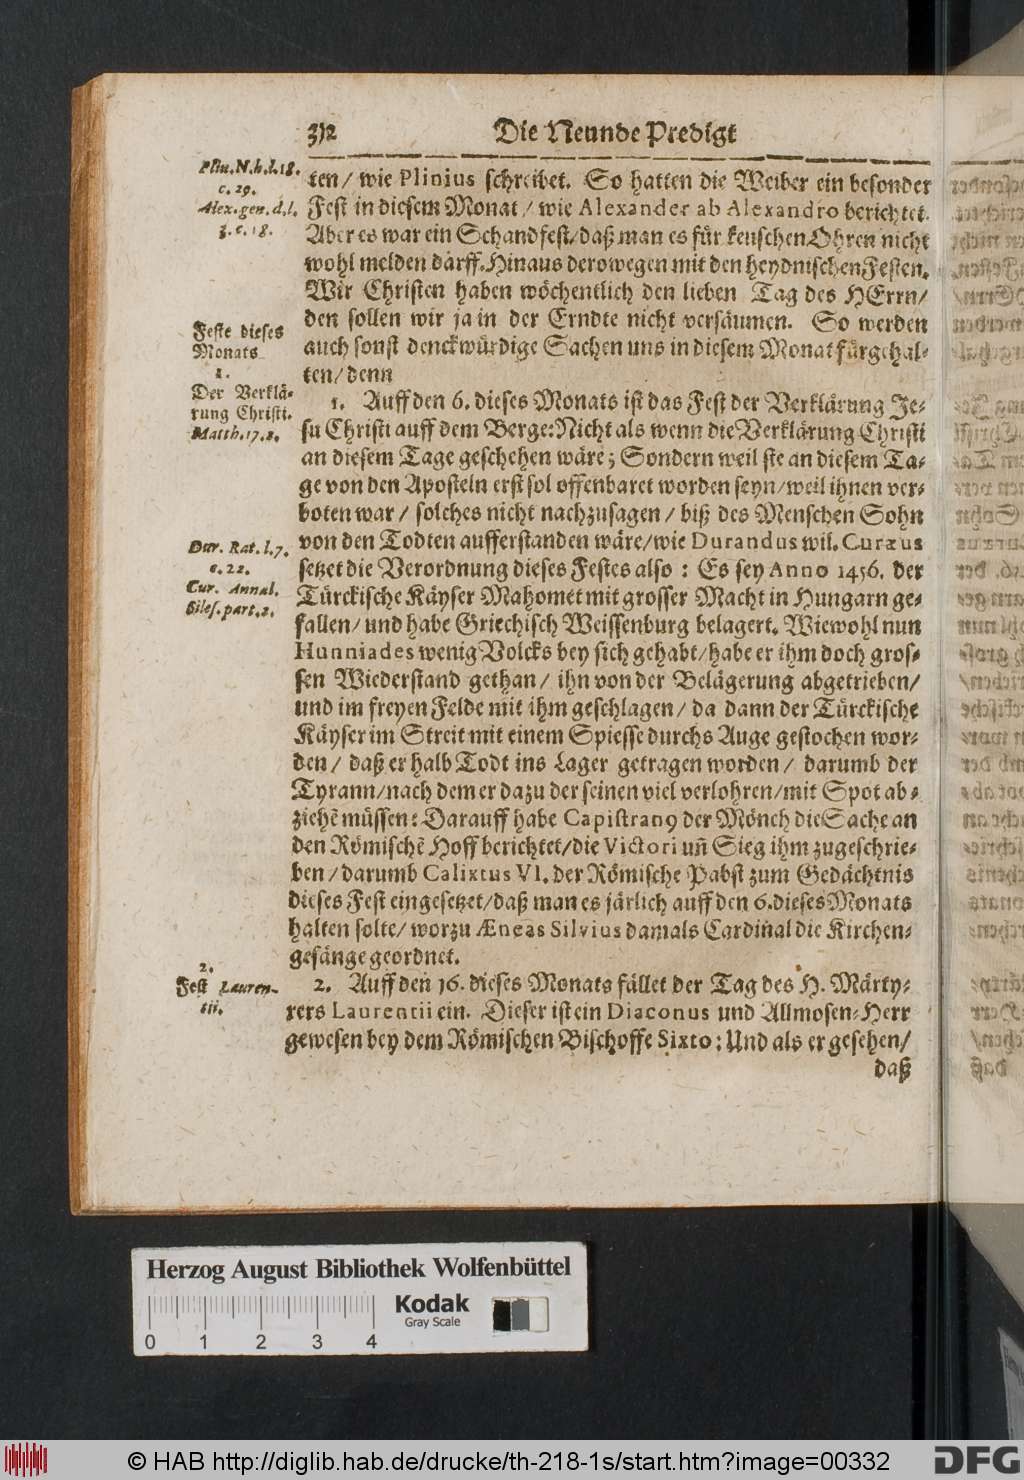 312 Die Neunde Predigt
Plin. N. h. l. 18.
c. 29.
Alex. gen. d. l.
3. c. 18.
ten/ wie Plinius schreibet. So hatten die Weiber ein besonder
Fest in diesem Monat/ wie Alexander ab Alexandro berichtet.
Aber es war ein Schandfest/ daß man es für keuschen Ohren nicht
wohl melden darff. Hinaus derowegen mit den heydnischen Festen.
Wir Christen haben wöchentlich den lieben Tag des HErrn/
den sollen wir ja in der Erndte nicht versäumen. So werden
auch sonst denckwürdige Sachen uns in diesem Monat fürgehal-
ten/ denn
Feste dieses
Monats
1.
Der Verklä-
rung Christi.
Matth. 17. 8.
1. Auff den 6. dieses Monats ist das Fest der Verklärung Je-
su Christi auff dem Berge: Nicht als wenn die Verklärung Christi
an diesem Tage geschehen wäre; Sondern weil sie an diesem Ta-
ge von den Aposteln erst sol offenbaret worden seyn/ weil ihnen ver-
boten war/ solches nicht nachzusagen/ biß des Menschen Sohn
von den Todten aufferstanden wäre/ wie Durandus wil. Curæus
setzet die Verordnung dieses Festes also: Es sey Anno 1456. der
Türckische Käyser Mahomet mit grosser Macht in Hungarn ge-
fallen/ und habe Griechisch Weissenburg belagert. Wiewohl nun
Hunniades wenig Volcks bey sich gehabt/ habe er ihm doch gros-
sen Wiederstand gethan/ ihn von der Belägerung abgetrieben/
und im freyen Felde mit ihm geschlagen/ da dann der Türckische
Käyser im Streit mit einem Spiesse durchs Auge gestochen wor-
den/ daß er halb Todt ins Lager getragen worden/ darumb der
Tyrann/ nach dem er dazu der seinen viel verlohren/ mit Spot ab-
ziehẽ müssen: Darauff habe Capistranꝰ der Mönch die Sache an
den Römischẽ Hoff berichtet/ die Victori uñ Sieg ihm zugeschrie-
ben/ darumb Calixtus VI. der Römische Pabst zum Gedächtnis
dieses Fest eingesetzet/ daß man es järlich auff den 6. dieses Monats
halten solte/ worzu Æneas Silvius damals Cardinal die Kirchen-
gesänge geordnet.
Dur. Rat. l. 7.
c. 22.
Cur. Annal.
Siles. part. 2.
2.
Fest Lauren-
tii.
2. Auff den 16. dieses Monats fället der Tag des H. Märty-
rers Laurentii ein. Dieser ist ein Diaconus und Allmosen-Herr
gewesen bey dem Römischen Bischoffe Sixto: Und als er gesehen/
daß
Herzog August Bibliothek Wolfenbüttel
Kodak
Gray Scale
0 1 2 3 4
© HAB http://diglib.hab.de/drucke/th-218-1s/start.htm?image=00332
DFG